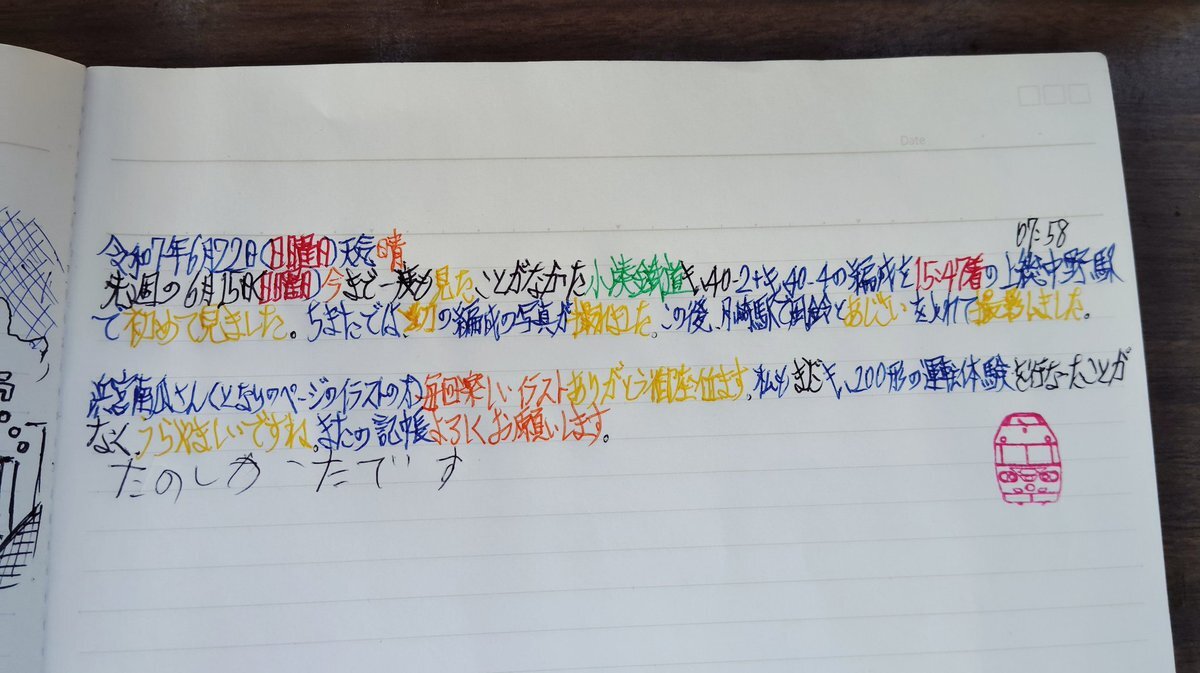 Date
07:58
令和7年6月22日(日曜日)天気 晴
先週の6月15日(日曜日)今まで一度も見たことがなかた小湊鐵道キハ40-2+キハ40-4の編成を15:47着の上総中野駅
で初めて見ました。ちまたでは、の編成の写真が撮れました。この後、月崎駅で風鈴とあじさいを入れて撮影しました。
浜宮南瓜さん(となりのページのイラストの方)毎回楽しいイラストありがとう御座居ます。私もまだキハ200形の運転体験を行なったことが
なく、うらやましいですね。またの記帳よろしくお願いします。
たのしかったです